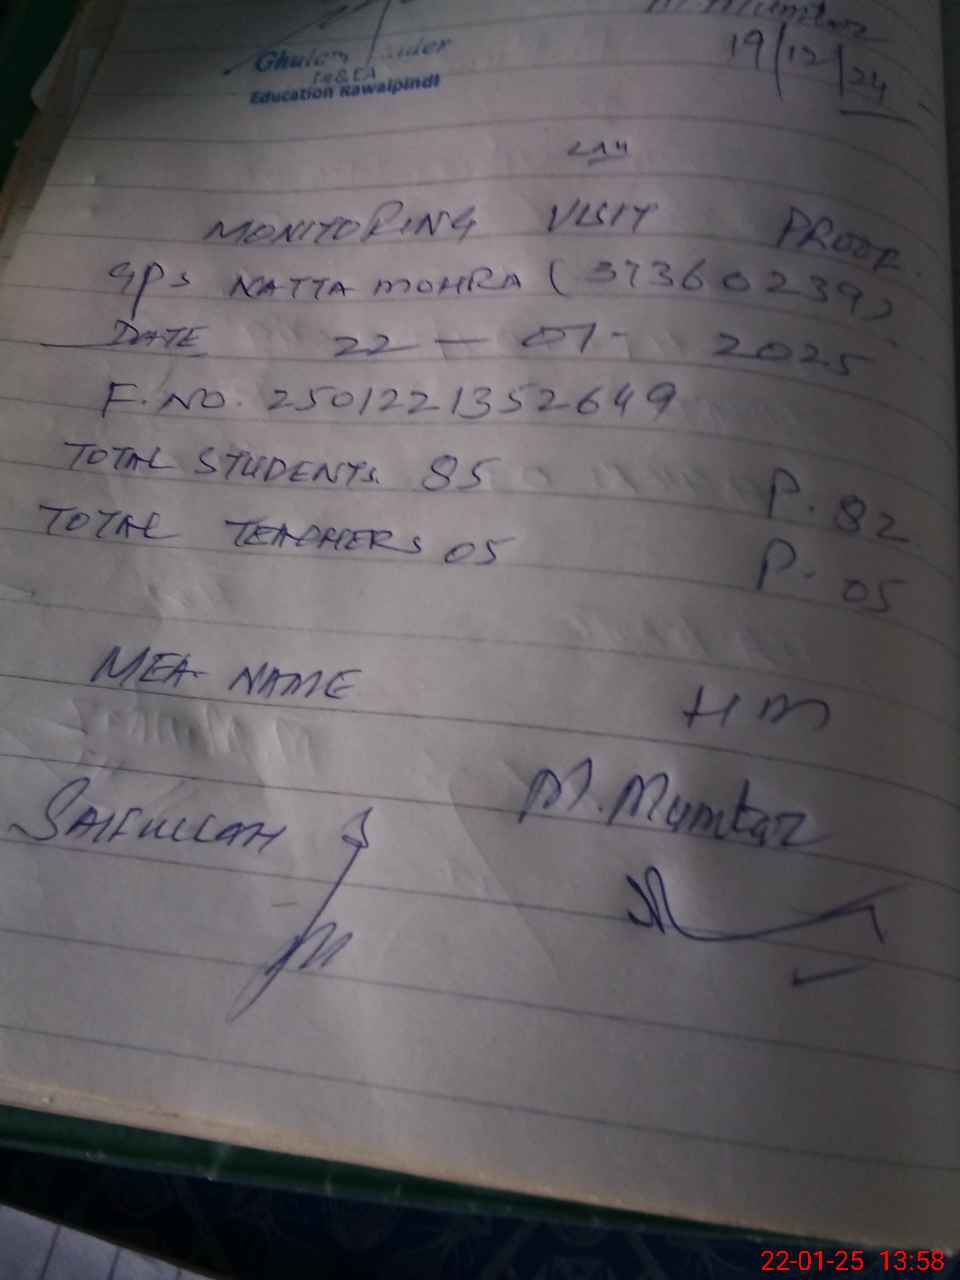 M. Mumtaz
19/12/24
Education Rawalpindi
MONITORING VISIT PROOF
GPS NATTA MOHRA (37360239)
DATE 22-01-2025
F.NO. 2501221352649
TOTAL STUDENTS 85 P. 82
TOTAL TEACHERS 05 P. 05
MEA NAME HM
SAIFULLAH M. Mumtaz
22-01-25 13:58